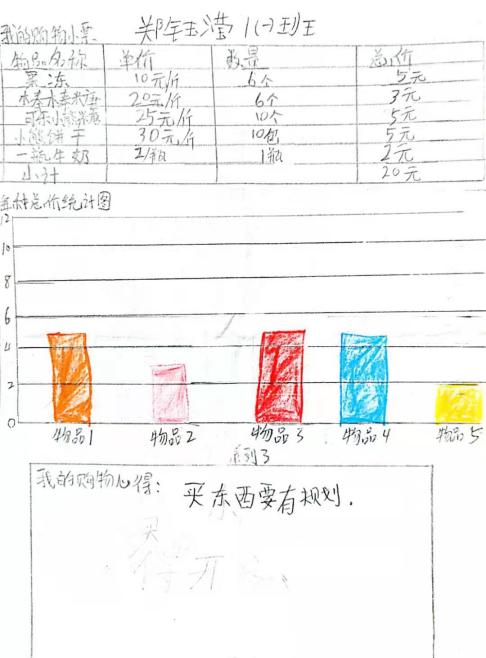 我的购物小票
郑钰滢 1(一)班
物品名称 单价 数量 总价
果冻 10元/斤 6个 5元
20元/斤 6个 3元
25元/斤 10个 5元
小熊饼干 30元/斤 10包 5元
一瓶牛奶 2/瓶 1瓶 2元
小计 20元
总价统计图
12
10
8
6
4
2
0
物品1 物品2 物品3 物品4 物品5
系列3
我的购物心得：
买东西要有规划.